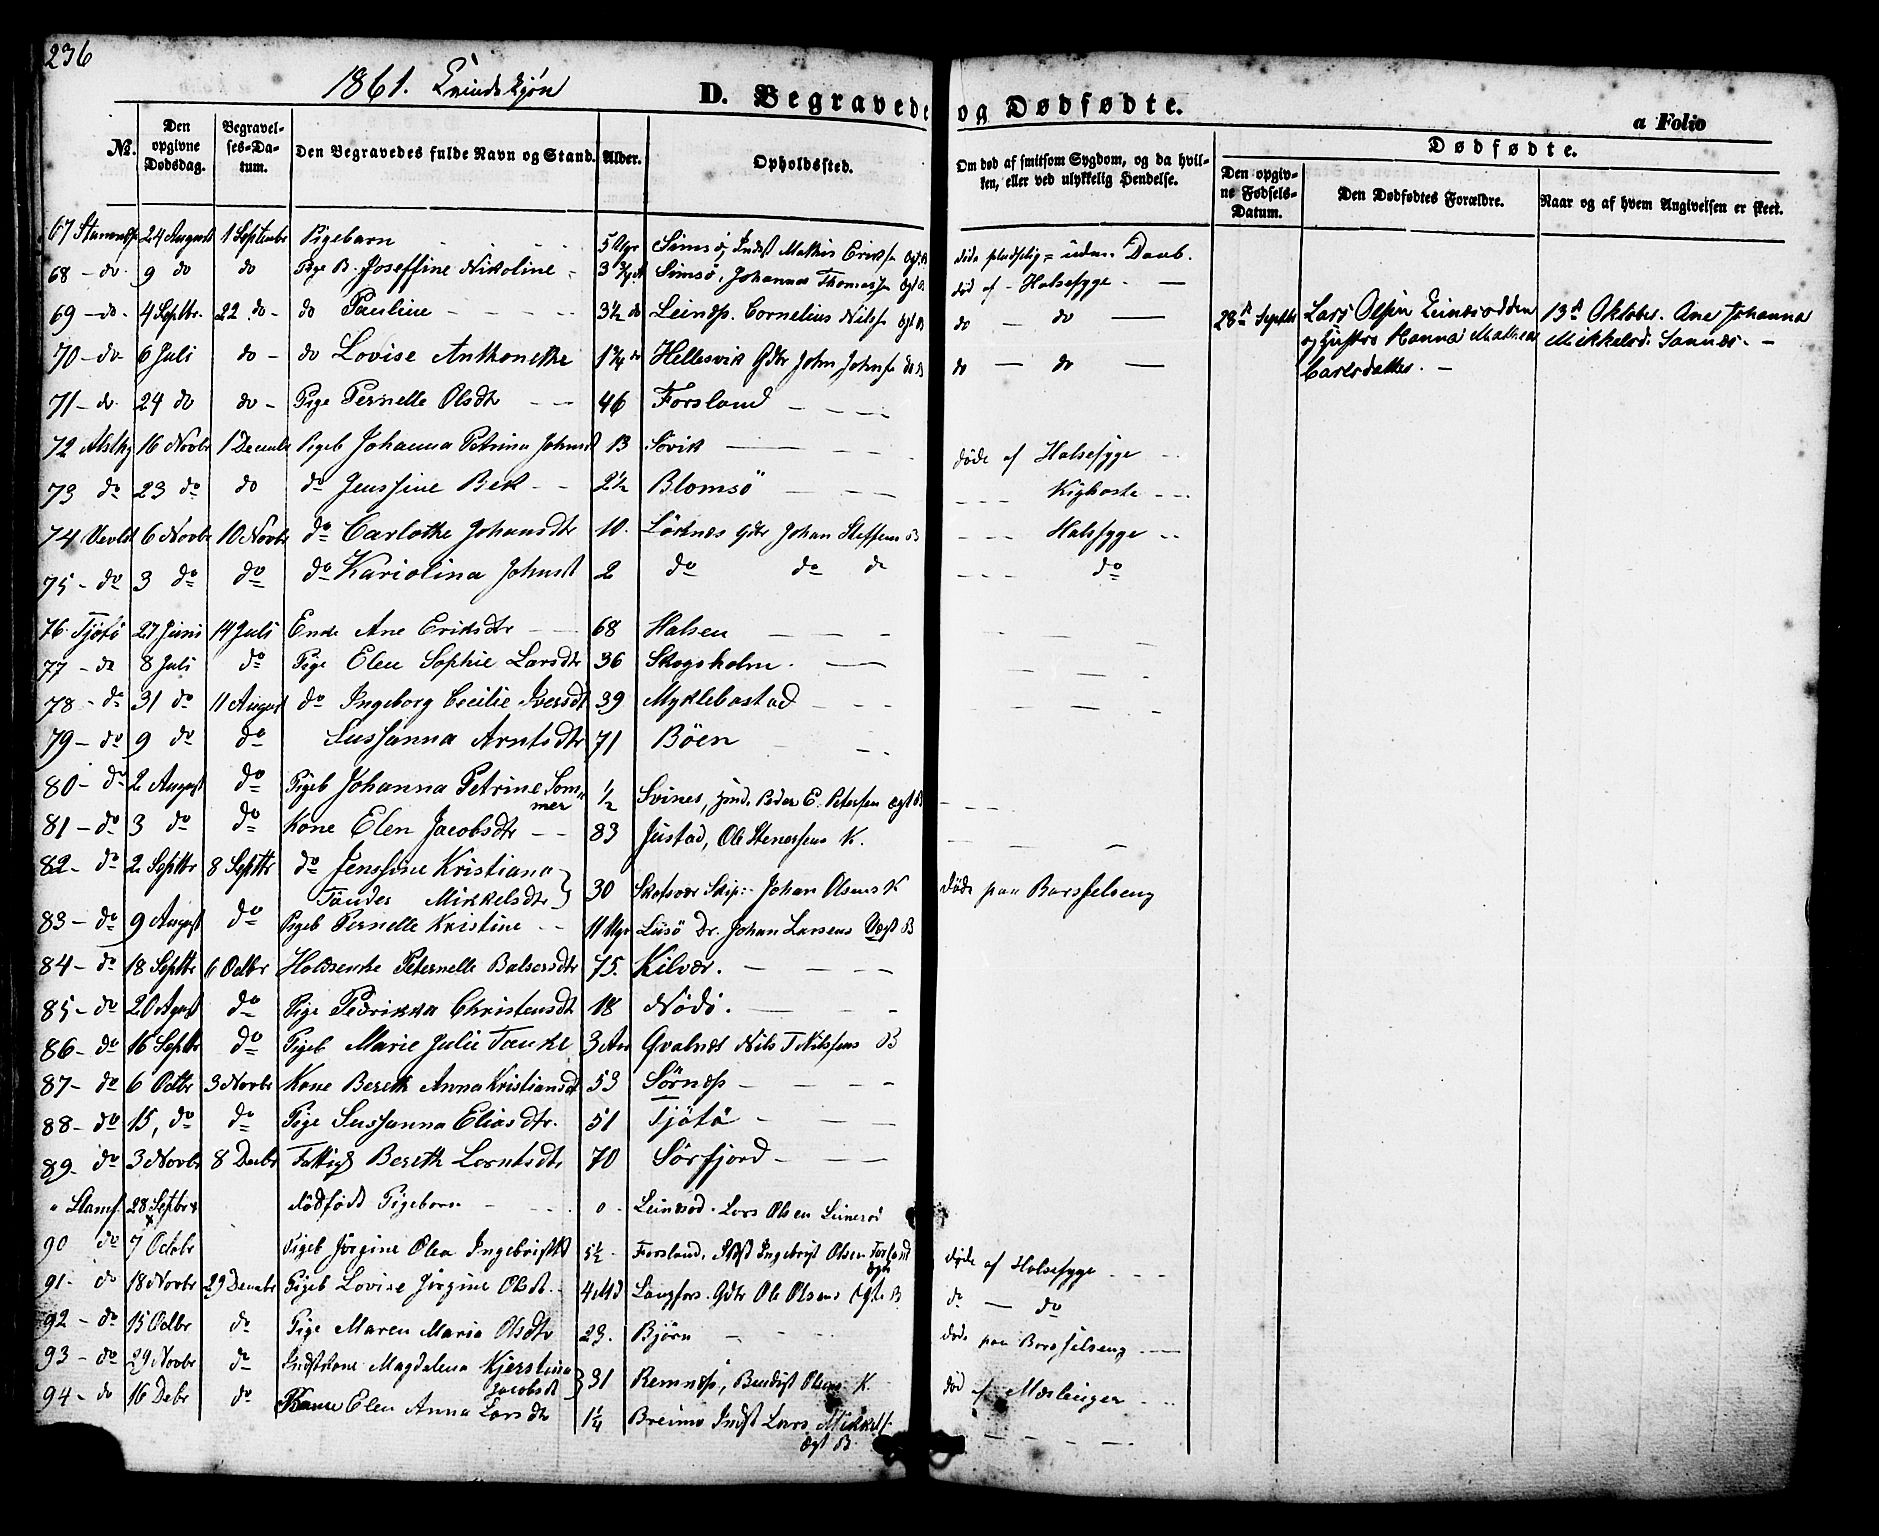 236
1861. Qvindekjøn
D. Begravede og Dødfødte.
a Folio
No. Den opgivne Dødsdag. Begravelses-Datum. Den Begravedes fulde Navn og Stand. Alder. Opholdssted. Om død af smitsom Sygdom, og da hvilken, eller ved ulykkelig Hendelse. Dødfødte.
Den opgivne Fødsels-Datum. Den Dødfødtes Forældre. Naar og af hvem Angivelsen er skeet.
67 24 August 1 Septembr Pigebarn 5 Ugr Simsö, Indst Mathis Eriks Ægt B døde pludselig = uden Daab.
68 - do 9 do do Pige B. Joseffine Nikoline 3 Simsö, Johannes Thomass Ægt B død af - Halsesyge
69 - do 4 Septbr. 22 do do Pauline 3½ do Leinæss. Cornelius Nilss Ægt B do - do 28de Septbr Lars Olsen 13de Oktober. Ane Johanna
70 - do 6 Juli do do Lovise Anthonette 1¾ do Hellesvik Gdbr John Johns do B do - do og Hustro Hanna Mathea Mikkelsd. Sannæs.
Carlsdatter.
71 - do 24 do do Pige Pernelle Olsdtr 46 Forsland
72 Alsthg 16 Novbr 1 Decembr Pigeb Johanna Petrina Johnsd 13 Søvik døde af Halsesyge
73 do 23 do do do Jenssine Bek 2½ Blomsö Kighoste
74 6 Novbr 10 Novbr do Carlothe Johansdtr 10. Gdbr Johan Steffens B Halssyge
75 - do 3 do do do Kariolina Johnsd 2 do do do do
76 Tjötö 27 Juni 14 Juli Enke Ane Eriksdtr 68 Halsen
77 - do 8 Juli do Pige Elen Sophie Larsdtr 36 Skogsholm.
78 - do 31 do 11 August do Ingeborg Cecilie Iversdt 39 Myklebostad
79 - do 9 do do Sussanna Arntsdtr 71 Böen
80 - do 2 August do Pigeb Johanna Petrine Sommer ½ Svines, Peder E. Petersen Ægt B
81 - do 3 do do Kone Elen Jacobsdtr 83 Justad, Ole Stenersens K.
82 - do 2 Septbr 8 Septbr do Jenssine Kristiana
Tander Mikkelsdtr 30 Skotsvær Skip: Johan Olsens K døde paa Barsselseng
83 - do 9 August do Pigeb Pernelle Kristine 11 Ugr Lisö Dr. Johan Larsens Uægt B
84 - do 18 Septbr 6 Octbr Peternelle Balsersdtr 75. Kilvær.
85 - do 20 August do Pige Pedrikka Christensdt 18
86 - do 16 Septbr do Pigeb Marie Julie 3 Aar Qvalnes Nils T Nilssens B
87 - do 6 Octbr 3 Novbr Kone Bereth Anna Kristiansdt 53 Sörnæss
88 - do 15, do do Pige Sussanna Eliasdtr. 51 Tjötö
89 - do 3 Novbr 8 Decbr Bereth Lorntsdtr 70 Sörfjord
" Stamn. 28 Septbr dødfødt Pigebarn 0 Leinæsod. Lars Olsen
90 do 7 Octbr Pigeb Jörgine Olea 5½ Forsland, Indst Ingebrigt Olsen Forsland Ægte døde af Halsesyge
91 - do 18 Novbr 29 Decembr Pigeb Lovise Jörgine Olsdt 4 Md Langfors. Gdbr Ole Olsens Ægte B do - do
92 - do 15 Octbr do Pige Maren Maria Olsdtr 23. Björn døde paa Barsselseng
93 - do 29 Novbr do Magdalena Kjerstina
Jacobsdt 31 Remnæss, Bendigt Olsens K. død af Mæslinger
94 - do 16 Debr do Elen Anna Larsdtr 1¼ Breimo Indst Lars Mikkels
Ægt B